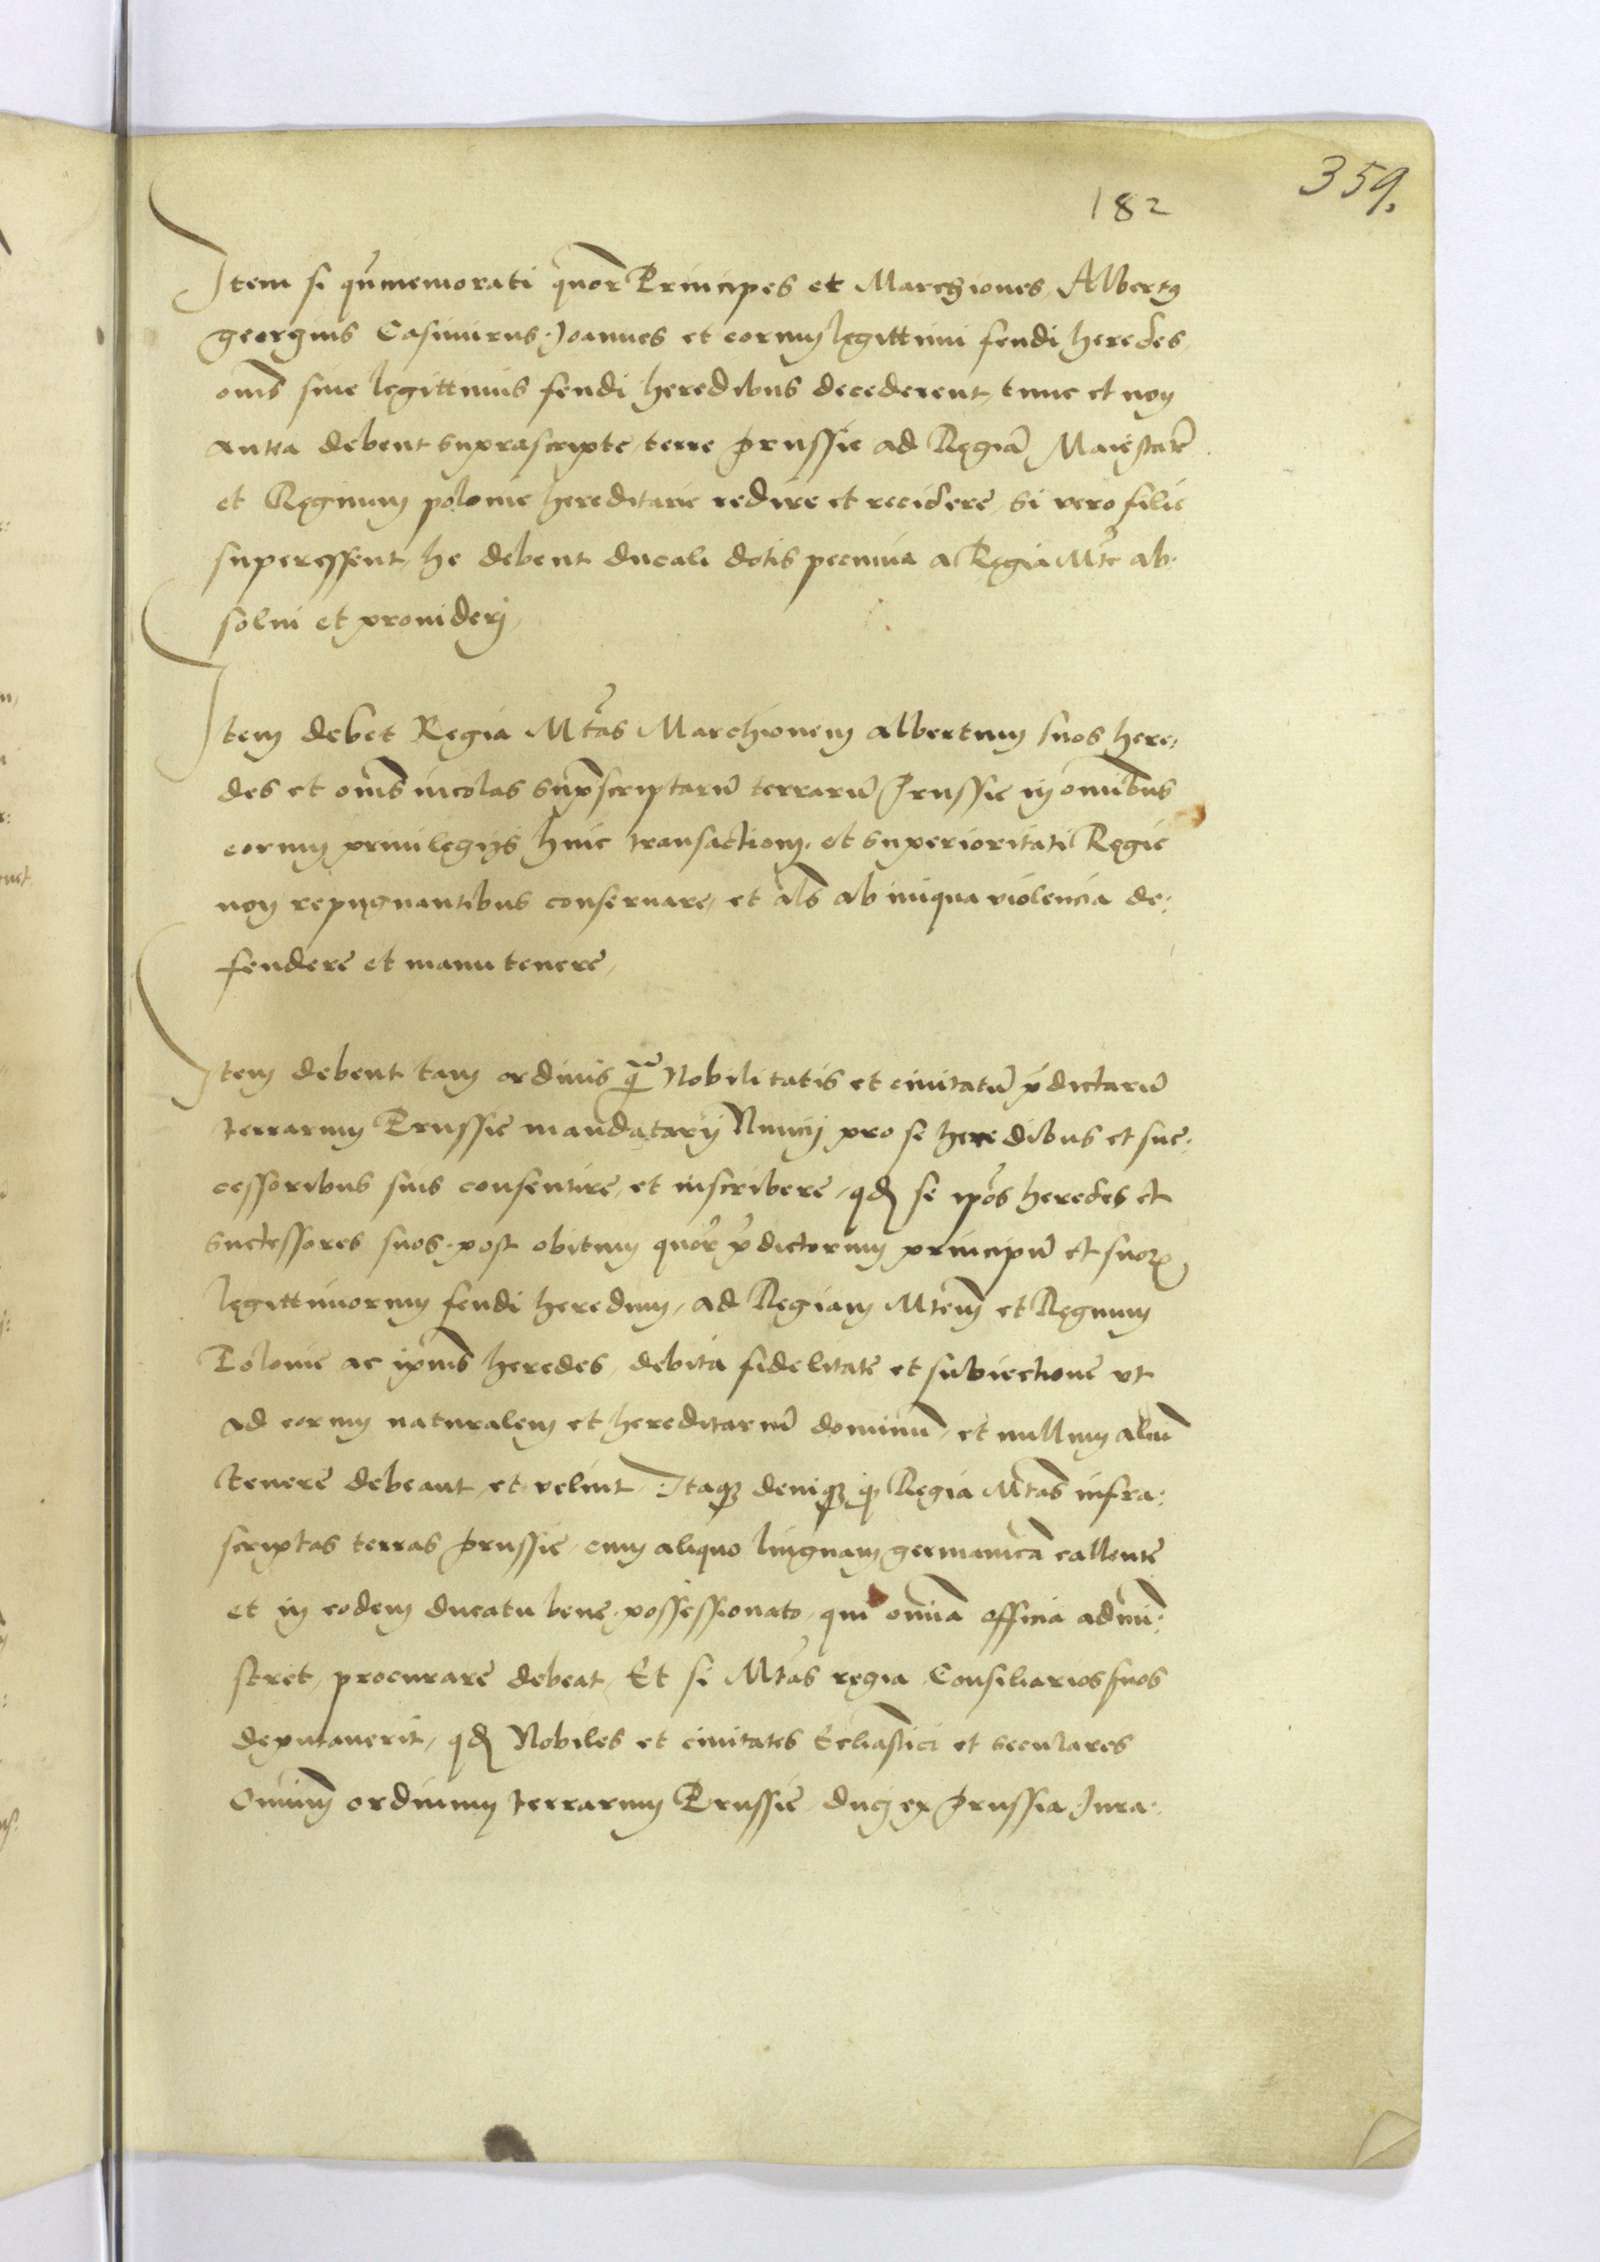 359.
182
Item si q̃memorati quor̃ Principes et Marchiones, Albertꝰ
georgius Casimirus Joannes et eorum legittimi feudi heredes,
om̃s sine legittimis feudi heredibus decederent, tunc et non
antea debent suprascripte terre prussie ad Regiã Maiestatẽ
et Regnum polonie hereditarie redire et recidere, si vero filie
superessent, he debent ducali dotis pecunia a Regia Mte ab⸗
solui et prouideri,
Item debet Regia Mtas Marchionem albertum suos here⸗
des et om̃s incolas sup̃scriptarũ terrarũ Prussie in omĩbus
eorum priuilegijs huic transactioni et superioritati Regie
non repugnantibus conseruare, et al̃s ab iniqua violencia de:
fendere et manu tenere,
Item debent tam ordinis q̃ Nobilitatis et ciuitatũ p̃dictarũ
terrarum Prussie mandatarij Nuncij pro se heredibus et suc:
cessoribus suis consentire, et inscribere, qd se ip̃os heredes et
successores suos post obitum quor̃ p̃dictorum principũ et suoꝝ
legittimorum feudi heredum, ad Regiam Mtem et Regnum
Polonie ac ip̃ius heredes, debita fidelitate et subiectione vt
ad eorum naturalem et hereditariũ dominũ, et nullum aliũ
tenere debeant et velint, Itaqꝫ deniqꝫ ꝙ Regia Mtas infra:
scriptas terras prussie, cum aliquo linguam germanicã callente
et in eodem ducatu bene possessionato, qui omnia officia admi͂:
stret, procurare debeat, Et si Mtas regia Consiliarios suos
deputauerit, qd Nobiles et ciuitates Ecl̃iastici et seculares
Omnium ordinum terrarum Prussie, duci ex prussia Jura: